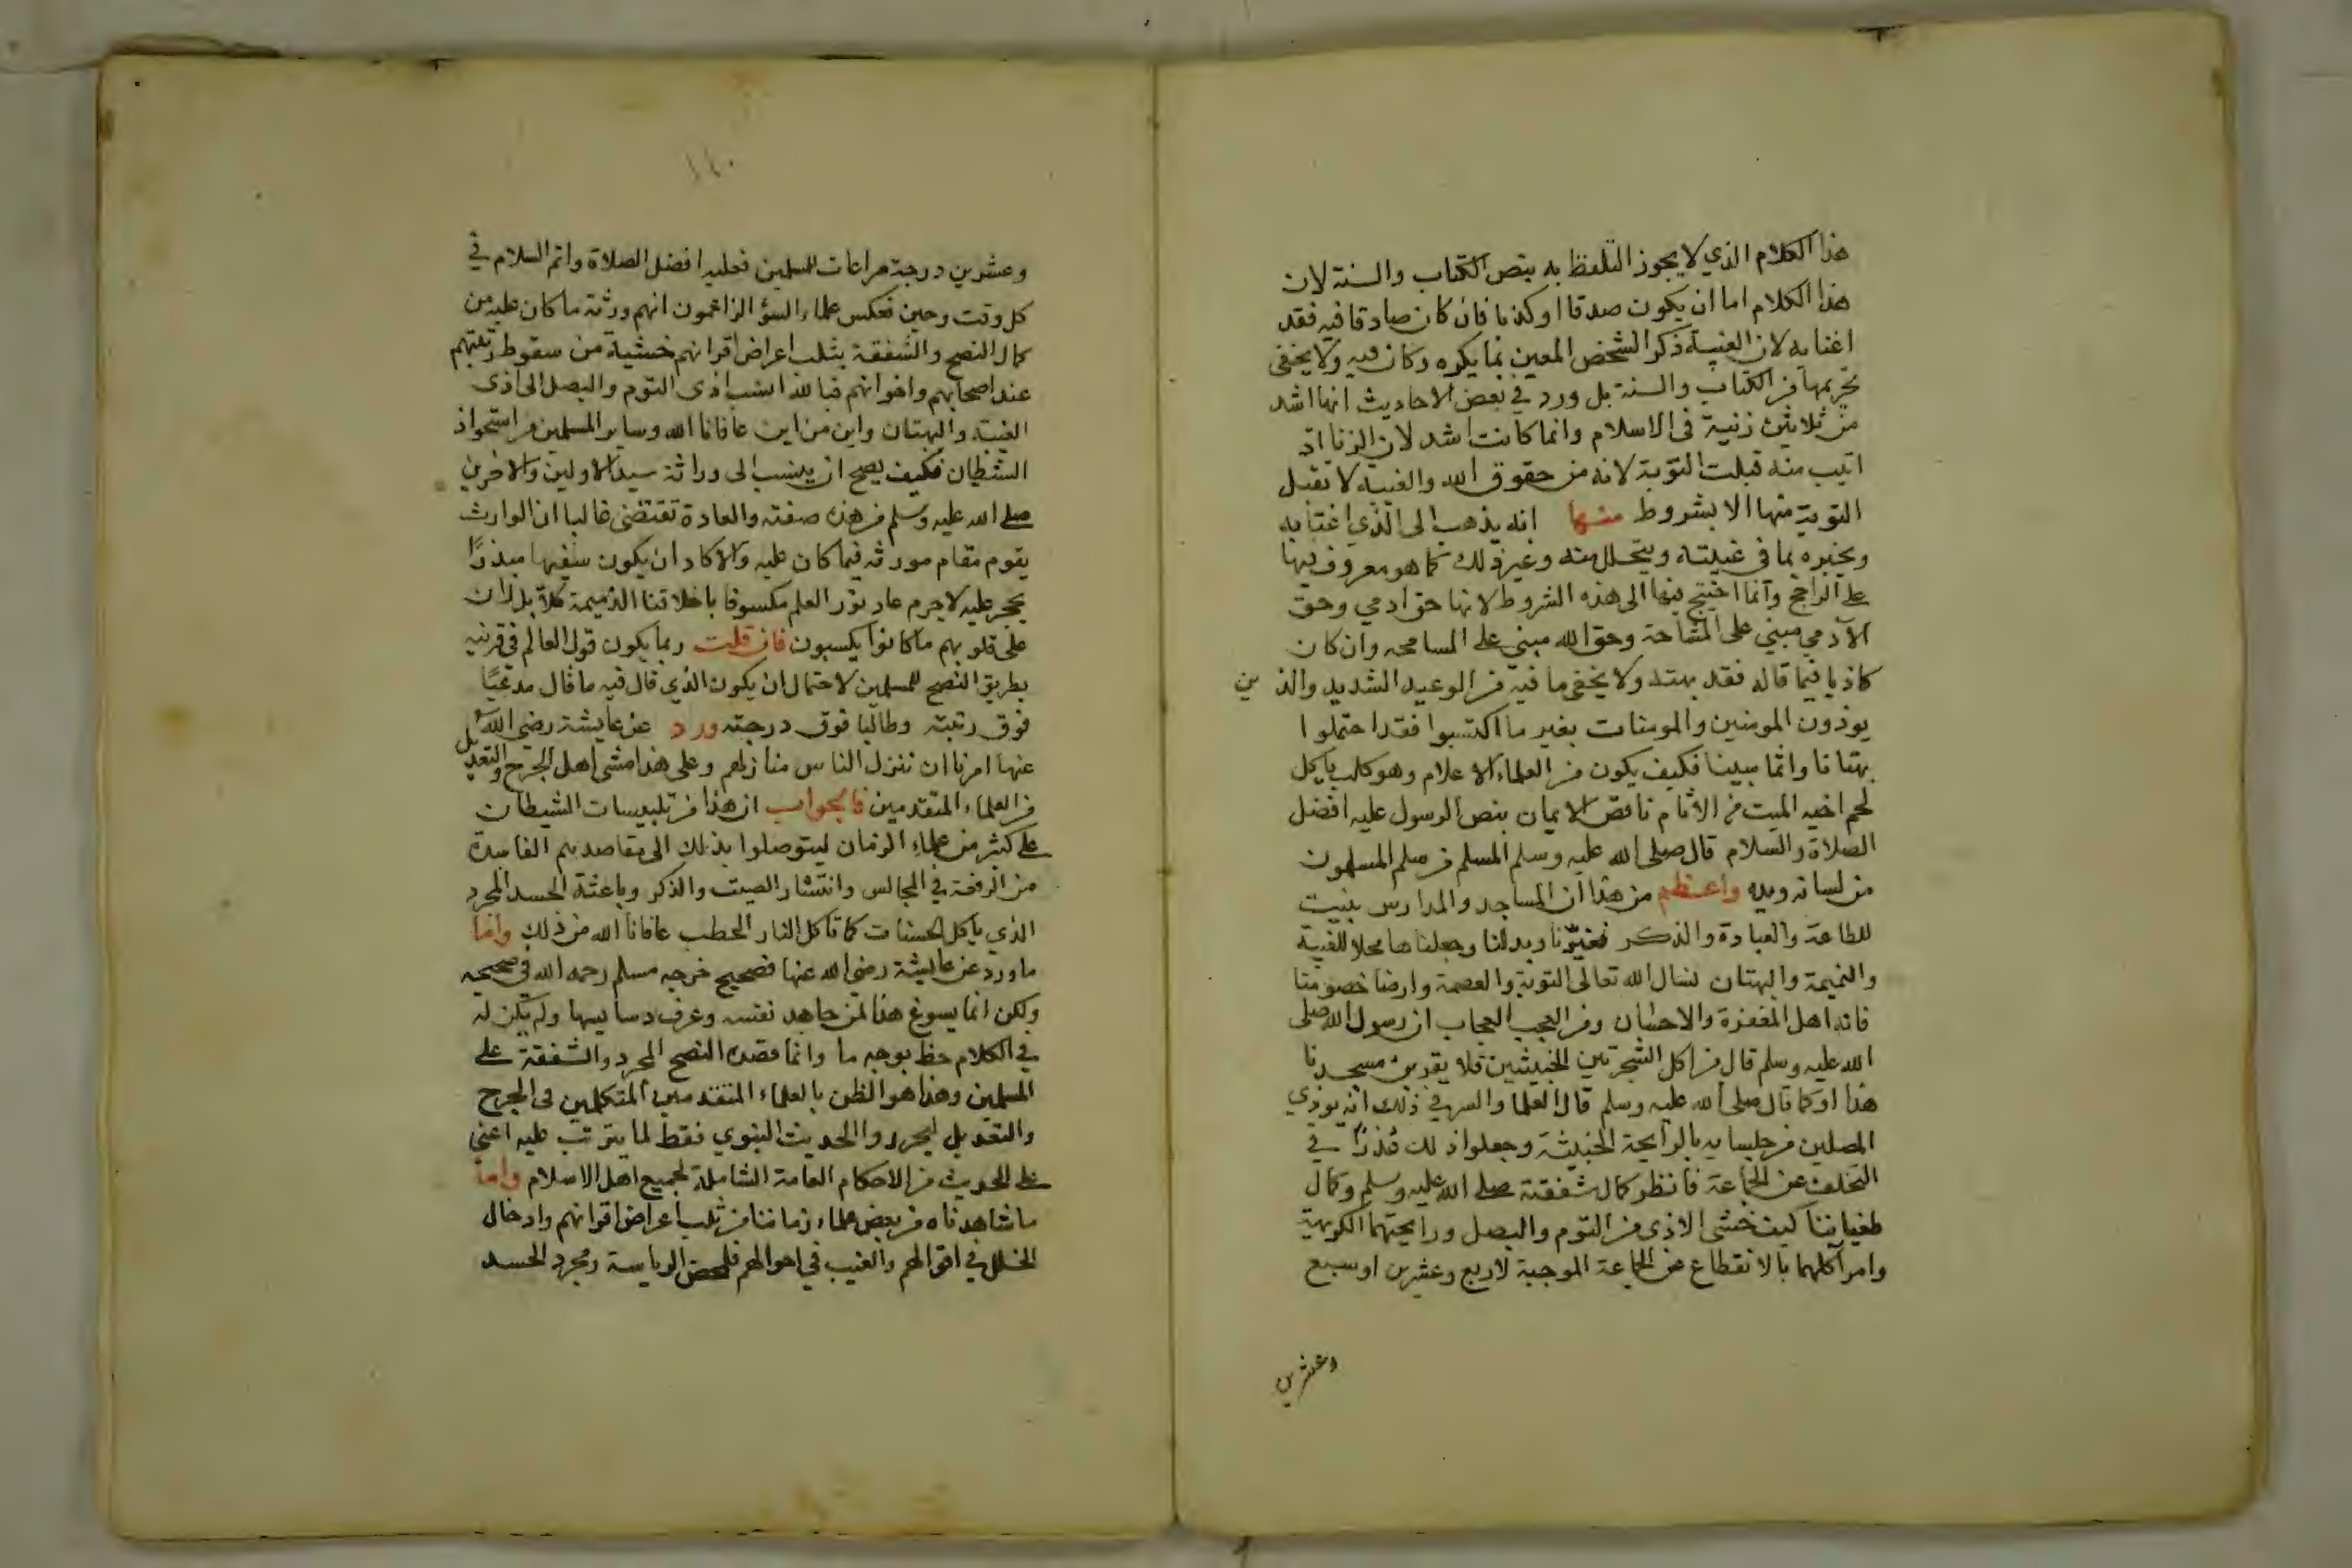 هذا الكلام الذي لا يجوز التلفظ به بنص الكتاب والسنة لان
هذا الكلام اما ان يكون صدقا او كذبا فان كان صادقا فيه فقد
اغتابه لان الغيبة ذكر الشخص المعين بما يكره وكان فيه ولا يخفى
تحريمها من الكتاب والسنة بل ورد في بعض الاحاديث انها اشد
من ثلاثين زنية في الاسلام وانما كانت اشد لان الزنا اذ
اتيب منه قبلت التوبة لانه من حقوق الله والغيبة لا تقبل
التوبة منها الا بشروط منها انه يذهب الى الذي اغتابه
ويخبره بما في غيبته ويتحلل منه وغير ذلك كما هو معروف فيها
على الراجح وانما احتيج فيها الى هذه الشروط لانها حق ادمي وحق
الآدمي مبني على المشاححة وحق الله مبني على المسامحه وان كان
كاذبا فيما قاله فقد بهته ولا يخفى ما فيه من الوعيد الشديد والذين
يوذون المومنين والمومنات بغير ما اكتسبوا فقد احتملوا
بهتانا واثما مبينا فكيف يكون من العلماء الاعلام وهو كلب ياكل
لحم اخيه الميت من الاثام ناقص الايمان بنص الرسول عليه افضل
الصلاة والسلام قال صلى الله عليه وسلم المسلم من سلم المسلمون
من لسانه ويده واعظم من هذا ان المساجد والمدارس بنيت
للطاعة والعبادة والذكر فغيّرنا وبدلنا وجعلناها محلا للغيبة
والنميمة والبهتان نسال الله تعالى التوبة والعصمة وارضا خصومنا
فانه اهل المغفرة والاحسان ومن العجب العجاب ان رسول الله صلى
الله عليه وسلم قال من اكل الشجرتين الخبيثتين فلا يقربن مسجدنا
هذا او كما قال صلى الله عليه وسلم قال العلما والسر في ذلك انه يوذي
المصلين من جلسايه بالرايحة الخبيثة وجعلوا ذلك عذرا في
التخلف عن الجماعة فانظر كمال شفقته صلى الله عليه وسلم وكمال
طغياننا كيف خشى الاذى من الثوم والبصل ورايحتهما الكريهة
وامر آكلهما بالانقطاع عن الجماعة الموجبة لاربع وعشرين او سبع
وعشرين
١٤٠
وعشرين درجة مراعات للمسلمين فعليه افضل الصلاة واتم السلام في
كل وقت وحين فعكس علماء السؤ الزاعمون انهم ورثة ما كان عليه من
كمال النصح والشفقة بثلب اعراض اقرانهم خشية من سقوط رتبتهم
عند اصحابهم واخوانهم فبالله انسب اذى الثوم والبصل الى اذى
الغيبة والبهتان واين من اين عافانا الله وساير المسلمين من استحواذ
الشيطان فكيف يصح ان ينسب الى وراثة سيد الاولين والاخرين
صلى الله عليه وسلم من هذه صفته والعادة تقتضي غالبا ان الوارث
يقوم مقام مورثه فيما كان عليه والا كاد ان يكون سفيها مبذرًا
يحجر عليه لا جرم عاد نور العلم مكسوفا باخلاقنا الذميمة كلا بل ران
على قلوبهم ما كانوا يكسبون فان قلت ربما يكون قول العالم في قرينه
بطريق النصح للمسلمين لاحتمال ان يكون الذي قال فيه ما قال مدعيًا
فوق رتبته وطالبا فوق درجته ورد عن عايشة رضي الله
عنها امرنا ان ننزل الناس منازلهم وعلى هذا مشى اهل الجرح والتعديل
من العلماء المتقدمين فالجواب ان هذا من تلبيسات الشيطان
على كثر من علماء الزمان ليتوصلوا بذلك الى مقاصدهم الفاسدة
من الرفعة في المجالس وانتشار الصيت والذكر وباعثة الحسد المجرد
الذي ياكل الحسنات كما تاكل النار الحطب عافانا الله من ذلك واما
ما ورد عن عايشة رضي الله عنها فصحيح خرجه مسلم رحمه الله في صحيحه
ولكن انما يسوغ هذا لمن جاهد نفسه وعرف دسايسها ولم يكن له
في الكلام حظ بوجه ما وانما قصده النصح المجرد والشفقة على
المسلمين وهذا هو الظن بالعلماء المتقدمين المتكلمين في الجرح
والتعديل ليحرروا الحديث النبوي فقط لما يترتب عليه اعني
على الحديث من الاحكام العامة الشاملة لجميع اهل الاسلام واما
ما شاهدناه من بعض علماء زماننا من ثلب اعراض اقرانهم وادخال
الخلل في اقوالهم والعيب في احوالهم فلمحض الرياسة ومجرد الحسد